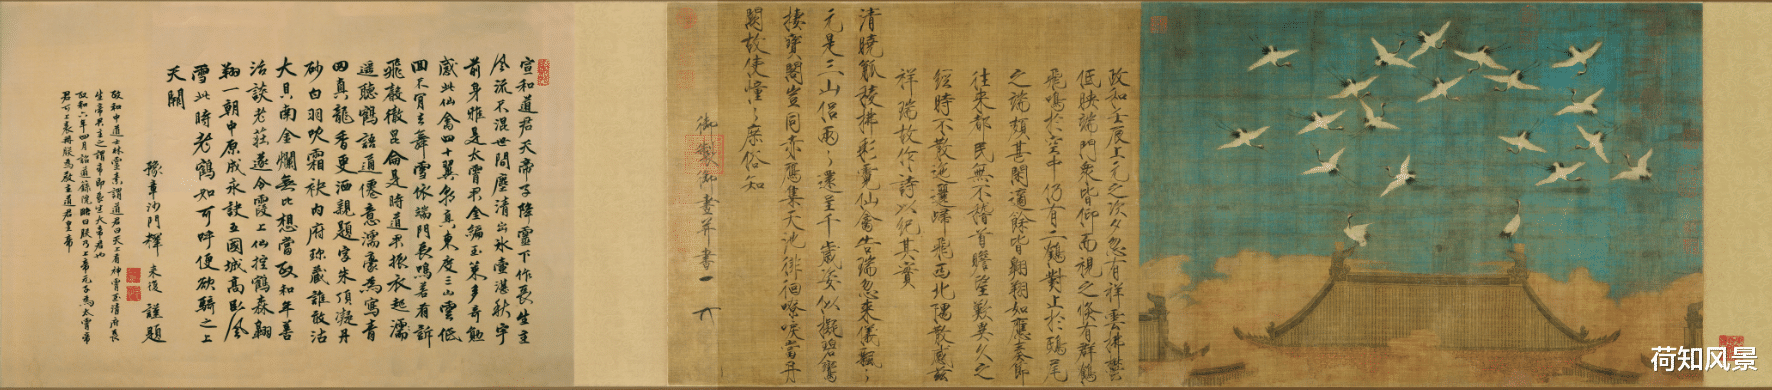 政和壬辰上元之次夕忽有祥雲拂鬱
低映端門衆皆仰而視之倏有群鶴
飛鳴於空中仍有二鶴對止於鴟尾
之端頗甚閑適餘皆翱翔如應奏節
往來都民無不稽首瞻望歎異久之
經時不散迤邐歸飛西北隅散感茲
祥瑞故作詩以紀其實
清曉觚稜拂彩霓仙禽告瑞忽來儀飄〻
元是三山侶兩〻還呈千歲姿似擬碧鸞
棲寶閣豈同赤鴈集天池徘徊嘹唳當丹
闕故使憧〻庶俗知
御製御畫并書
宣和道君天帝子降靈下作長生主
風流不混世間塵清出冰壺湛秋宇
前身雖是太霄君金編玉策多奇勳
感此仙禽四十翼朝真東度三山雲低
回不肯去舞雪依端門長鳴善有訴
飛聲徹昆侖是時道君振衣起
遥聽鶴語道僊意濡毫為寫青
田真龍香更洒親題字朱頂凝丹
砂白羽吹霜袂内府珍藏誰敢沽
大貝南金爛無比想當政和年善
治談老莊遂令霞上仙控鶴森翱
翔一朝中原成永訣五國城高臥風
雪此時老鶴如可呼便欲騎之上
天闕
豫章沙門釋 來復 謹題
政和中道士林靈素謂道君曰天上有神霄玉清府長
生帝君主之謂帝即長生大帝君也
政和六年四月詔道錄院略曰朕乃上帝元子為太霄帝
君可上表冊朕為教主道君皇帝
荷知风景